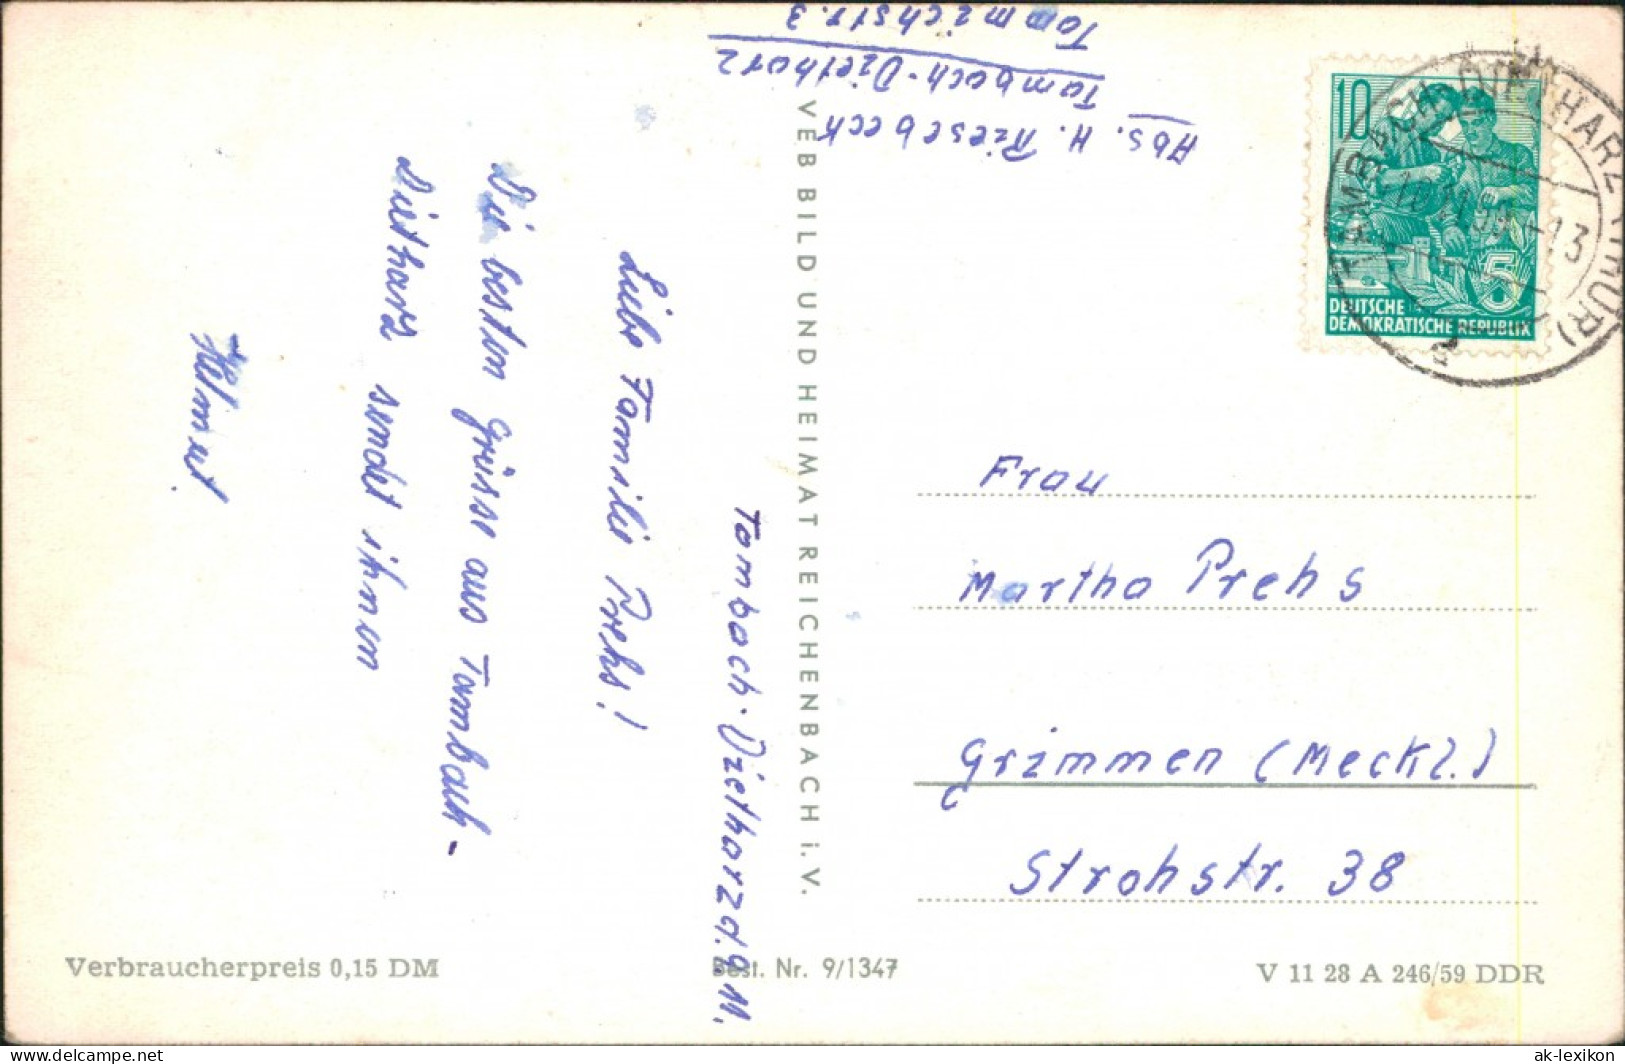 Abs. H. Riesebeck
Tambach-Dietharz
Tammichstr. 3
10
DEUTSCHE
DEMOKRATISCHE REPUBLIK
5
TAMBACH-DIETHARZ (THÜR)
-13
a
Tambach-Dietharz d. 9.11.
Liebe Familie Prehs!
Die besten Grüsse aus Tambach-
Dietharz sendet ihnen
Helmut
VEB BILD UND HEIMAT REICHENBACH i.V.
Frau
Martha Prehs
Grimmen (Meckl.)
Strohstr. 38
Verbraucherpreis 0,15 DM
Best. Nr. 9/1347
V 11 28 A 246/59 DDR
hwpho.to/delcampe.net
ak-lexikon